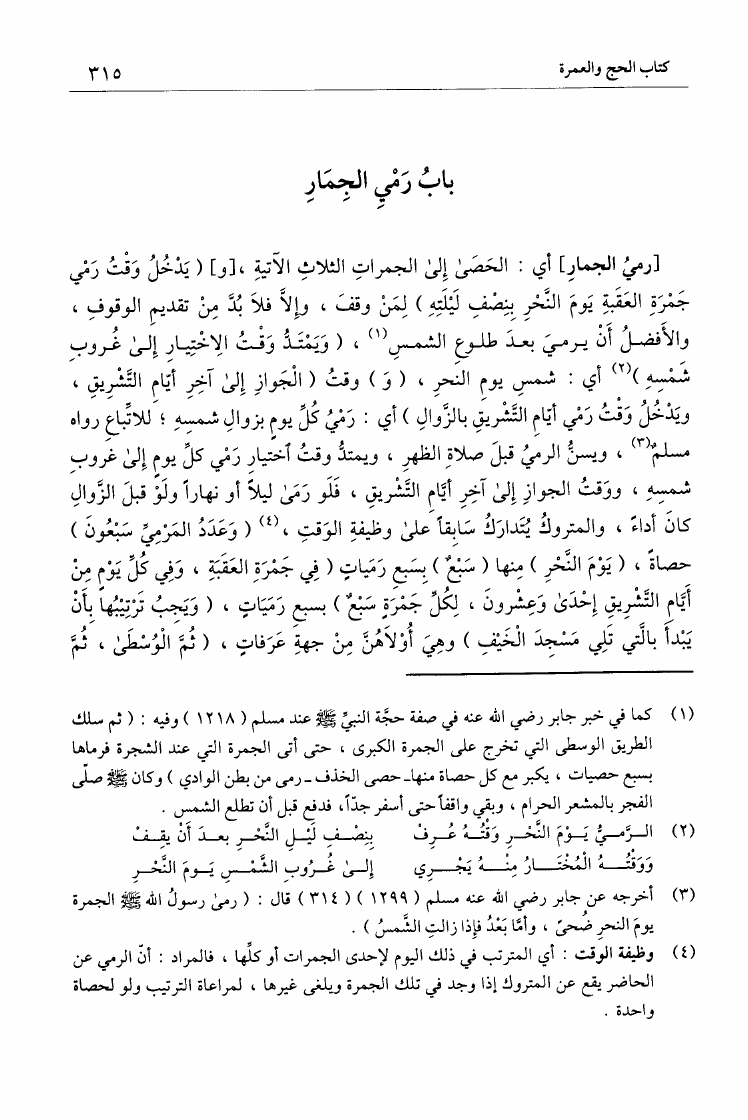 كتاب الحج والعمرة
٣١٥
بابُ رَمْيِ الجِمَارِ
[رميُ الجمارِ] أي : الحَصَىٰ إِلىٰ الجمراتِ الثلاثِ الآتيةِ ،[و] ( يَدْخُلُ وَقْتُ رَمْيِ
جَمْرَةِ العَقَبَةِ يَومَ النَّحْرِ بِنِصْفِ لَيْلَتِهِ ) لِمَنْ وقفَ ، وإِلاَّ فلاَ بُدَّ مِنْ تقديمِ الوقوفِ ،
والأفضلُ أَنْ يرميَ بعدَ طلوعِ الشمسِ(١) ، ( وَيَمْتَدُّ وَقْتُ الاخْتِيارِ إِلىٰ غُروبِ
شَمْسِهِ )(٢) أي : شمسِ يومِ النحرِ ، ( وَ ) وقتُ ( الْجَوازِ إِلىٰ آخِرِ أيّامِ التَّشْرِيقِ ،
ويَدْخُلُ وَقْتُ رَمْيِ أيّامِ التَّشْرِيقِ بالزَّوالِ ) أي : رَمْيُ كُلِّ يومٍ بزوالِ شمسِهِ ؛ للاتِّباعِ رواه
مسلمٌ(٣) ، ويسنُّ الرميُ قبلَ صلاةِ الظهرِ ، ويمتدُّ وقتُ ٱختيارِ رَمْيِ كلِّ يومٍ إِلىٰ غروبِ
شمسِهِ ، ووَقتُ الجوازِ إِلىٰ آخِرِ أيَّامِ التَّشْريقِ ، فَلَو رَمَىٰ ليلاً أو نهاراً ولَوْ قبلَ الزَّوالِ
كانَ أداءً ، والمتروكُ يُتَدارَكُ سَابِقاً علىٰ وظيفةِ الوَقتِ ،(٤) ( وَعَدَدُ المَرْمِيِّ سَبْعُونَ )
حصاةً ، ( يَوْمَ النَّحْرِ ) مِنها ( سَبْعٌ ) بِسَبعِ رَمَياتٍ ( فِي جَمْرَةِ العَقَبَةِ ، وَفِي كُلِّ يَوْمٍ مِنْ
أيَّامِ التَّشْرِيقِ إِحْدَىٰ وَعِشْرونَ ، لِكُلِّ جَمْرَةٍ سَبْعٌ ) بسبعِ رَمَيَاتٍ ، ( وَيَجِبُ تَرْتِيْبُها بأَنْ
يَبْدأَ بالَّتي تَلِي مَسْجِدَ الْخَيْفِ ) وهِيَ أُوْلاَهُنَّ مِنْ جهةِ عَرَفاتٍ ، ( ثُمَّ الْوُسْطَىٰ ، ثُمَّ
(١) كما في خبر جابر رضي الله عنه في صفة حجَّة النبيِّ ﷺ عند مسلم ( ١٢١٨ ) وفيه : ( ثم سلك
الطريق الوسطى التي تخرج على الجمرة الكبرى ، حتى أتى الجمرة التي عند الشجرة فرماها
بسبع حصيات ، يكبر مع كل حصاة منها_حصى الخذف_رمى من بطن الوادي ) وكان ﷺ صلَّى
الفجر بالمشعر الحرام ، وبقي واقفاً حتى أسفر جدّاً، فدفع قبل أن تطلع الشمس .
(٢) الـرَّمـيُّ يَـوْمَ النَّحْـرِ وَقْتُـهُ عُـرِفْ بِنِصْـفِ لَيْـلِ النَّحْـرِ بعـدَ أَنْ يقِـفْ
وَوَقتُـهُ الْمُخْتَـارُ مِنْـهُ يَجْـرِي إِلـىٰ غُـرُوبِ الشَّمْـسِ يَـومَ النَّحْـرِ
(٣) أخرجه عن جابر رضي الله عنه مسلم ( ١٢٩٩ ) ( ٣١٤ ) قال : ( رمىٰ رسولُ الله ﷺ الجمرة
يومَ النحرِ ضُحىً ، وأمَّا بَعْدُ فإِذا زالتِ الشَّمسُ ) .
(٤) وظيفة الوقت : أي المترتب في ذلك اليوم لإحدى الجمرات أو كلِّها ، فالمراد : أنّ الرمي عن
الحاضر يقع عن المتروك إذا وجد في تلك الجمرة ويلغى غيرها ، لمراعاة الترتيب ولو لحصاة
واحدة .